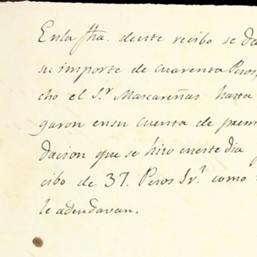 En la fha. de este recibo se da
su importe de cuarenta Pesos,
cho el Sr. Mascareñas hasta
garon en su cuenta de prem
dacion que se hizo en este dia
cibo de 37. Pesos 1r. como
le adeudavan.